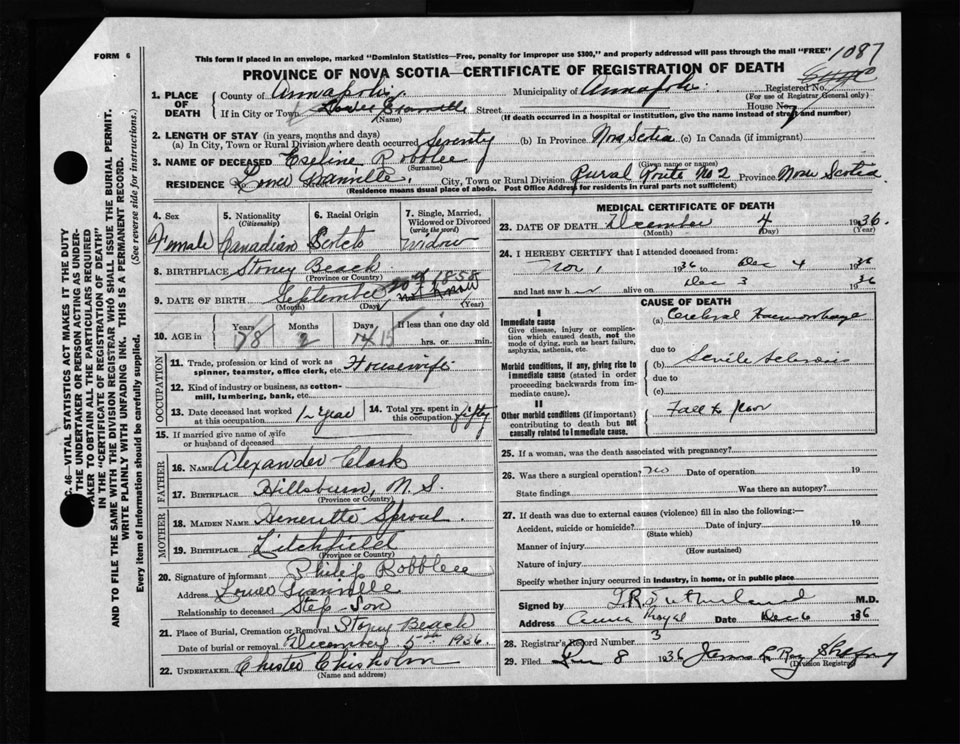 FORM 6
This form if placed in an envelope, marked "Dominion Statistics—Free, penalty for improper use $300," and properly addressed will pass through the mail "FREE"
1087
PROVINCE OF NOVA SCOTIA—CERTIFICATE OF REGISTRATION OF DEATH
Registered No.
(For use of Registrar General only)
1. PLACE OF DEATH
County of Annapolis. Municipality of Annapolis.
If in City or Town Lower Granville Street House No.
(Name) (If death occurred in a hospital or institution, give the name instead of street and number)
2. LENGTH OF STAY (in years, months and days)
(a) In City, Town or Rural Division where death occurred Seventy (b) In Province Nova Scotia (c) In Canada (if immigrant)
3. NAME OF DECEASED Eseline Robblee
(Surname) (Given name or names)
RESIDENCE Lower Granville, City, Town or Rural Division Rural Route No 2 Province Nova Scotia
(Residence means usual place of abode. Post Office Address for residents in rural parts not sufficient)
4. Sex Female
5. Nationality (Citizenship) Canadian
6. Racial Origin Scotch
7. Single, Married, Widowed or Divorced (write the word) Widow
8. BIRTHPLACE Stoney Beach
(Province or Country)
9. DATE OF BIRTH September 20th 1858
(Month) (Day) (Year)
10. AGE in Years 78 Months 2 Days 14 15 If less than one day old hrs. or min.
OCCUPATION
11. Trade, profession or kind of work as spinner, teamster, office clerk, etc. Housewife
12. Kind of industry or business, as cotton-mill, lumbering, bank, etc.
13. Date deceased last worked at this occupation 1 Year
14. Total yrs. spent in this occupation fifty
15. If married give name of wife or husband of deceased
FATHER
16. NAME Alexander Clark
17. BIRTHPLACE Hillsburn, N.S.
(Province or Country)
MOTHER
18. MAIDEN NAME Heneritte Sproul.
19. BIRTHPLACE Litchfield
(Province or Country)
20. Signature of informant Philip Robblee
Address Lower Granville
Relationship to deceased Step-Son
21. Place of Burial, Cremation or Removal Stoney Beach
Date of burial or removal December 5th 1936.
22. UNDERTAKER Chester Chisholm
(Name and address)
MEDICAL CERTIFICATE OF DEATH
23. DATE OF DEATH December 4 1936.
(Month) (Day) (Year)
24. I HEREBY CERTIFY that I attended deceased from:
Nov 1 1936 to Dec 4 1936
and last saw her alive on Dec 3 1936
CAUSE OF DEATH
I
Immediate cause
Give disease, injury or complication which caused death, not the mode of dying, such as heart failure, asphyxia, asthenia, etc.
(a) Cerebral Haemorrhage
due to
Morbid conditions, if any, giving rise to immediate cause (stated in order proceeding backwards from immediate cause).
(b) Senile Sclerosis
due to
(c)
II
Other morbid conditions (if important) contributing to death but not causally related to immediate cause.
Fall to floor
25. If a woman, was the death associated with pregnancy?
26. Was there a surgical operation? no Date of operation 19
State findings Was there an autopsy?
27. If death was due to external causes (violence) fill in also the following:—
Accident, suicide or homicide? Date of injury 19
(State which)
Manner of injury
(How sustained)
Nature of injury
Specify whether injury occurred in industry, in home, or in public place
Signed by Sutherland M.D.
Address Anna Royal Date Dec 6 1936
28. Registrar's Record Number 3
29. Filed 8 1936 James Ray
(Division Registrar)
C. 46—VITAL STATISTICS ACT MAKES IT THE DUTY
THE UNDERTAKER OR PERSON ACTING AS UNDER-
TAKER TO OBTAIN ALL THE PARTICULARS REQUIRED
IN THE "CERTIFICATE OF REGISTRATION OF DEATH"
AND TO FILE THE SAME WITH THE DIVISION REGISTRAR WHO SHALL ISSUE THE BURIAL PERMIT.
WRITE PLAINLY WITH UNFADING INK. THIS IS A PERMANENT RECORD.
Every item of information should be carefully supplied. (See reverse side for instructions.)